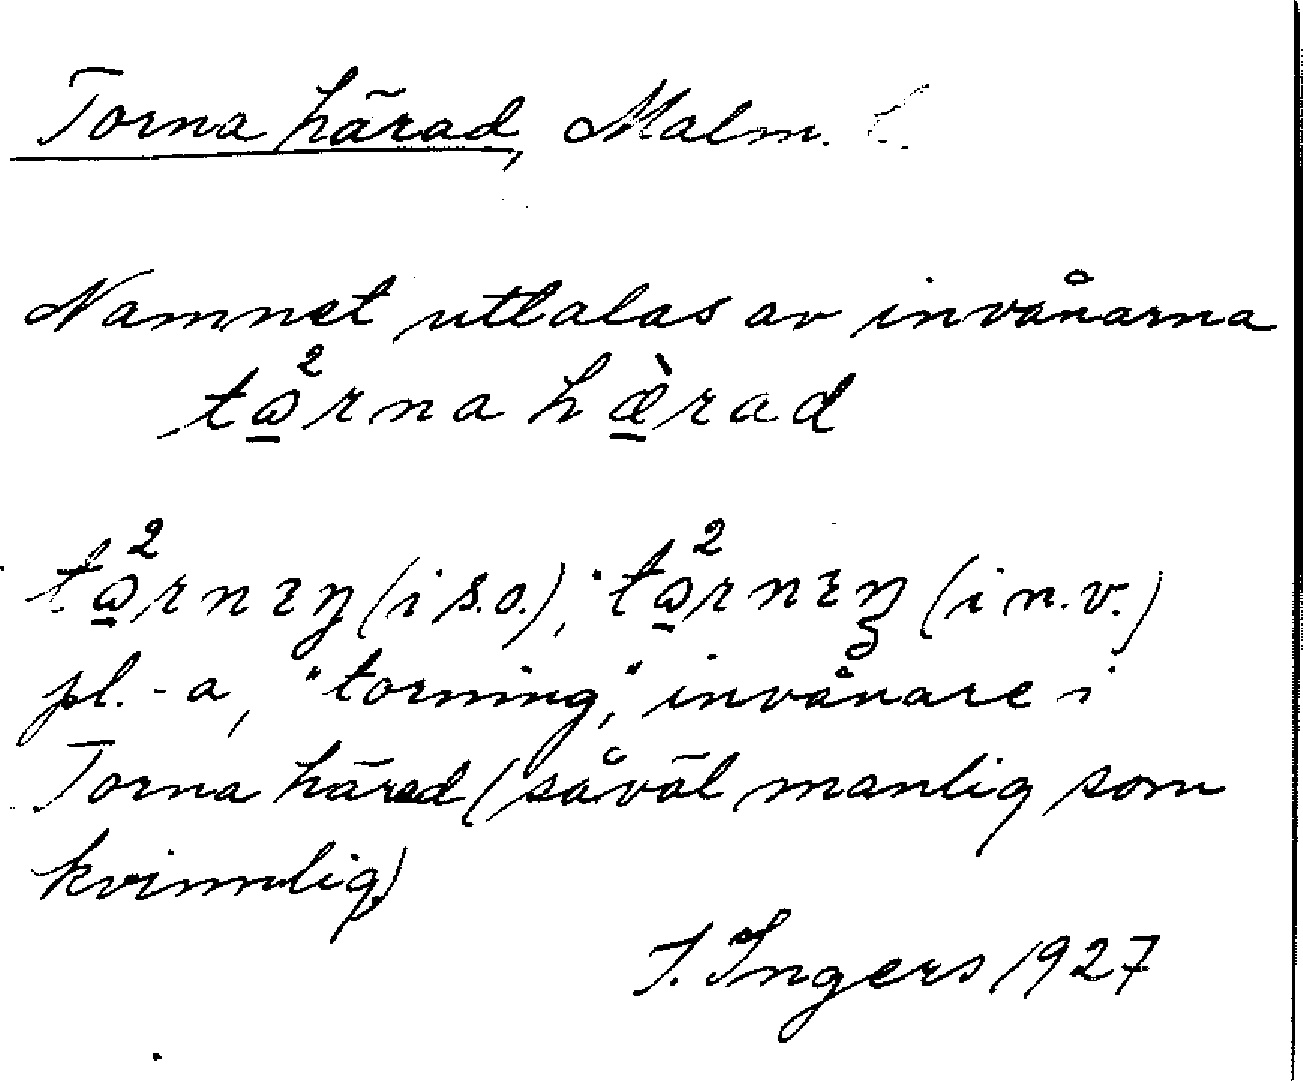 Torna härad, Malm. l.
Namnet uttalas av invånarna
tω̱²rna hæ̱̀rad
tω̱²rnɪŋ (i s.o.), tω̱²rnɪŋ (i n.v.)
pl. -a, "torning", invånare i
Torna härad (såväl manlig som
kvinnlig)
I. Ingers 1927